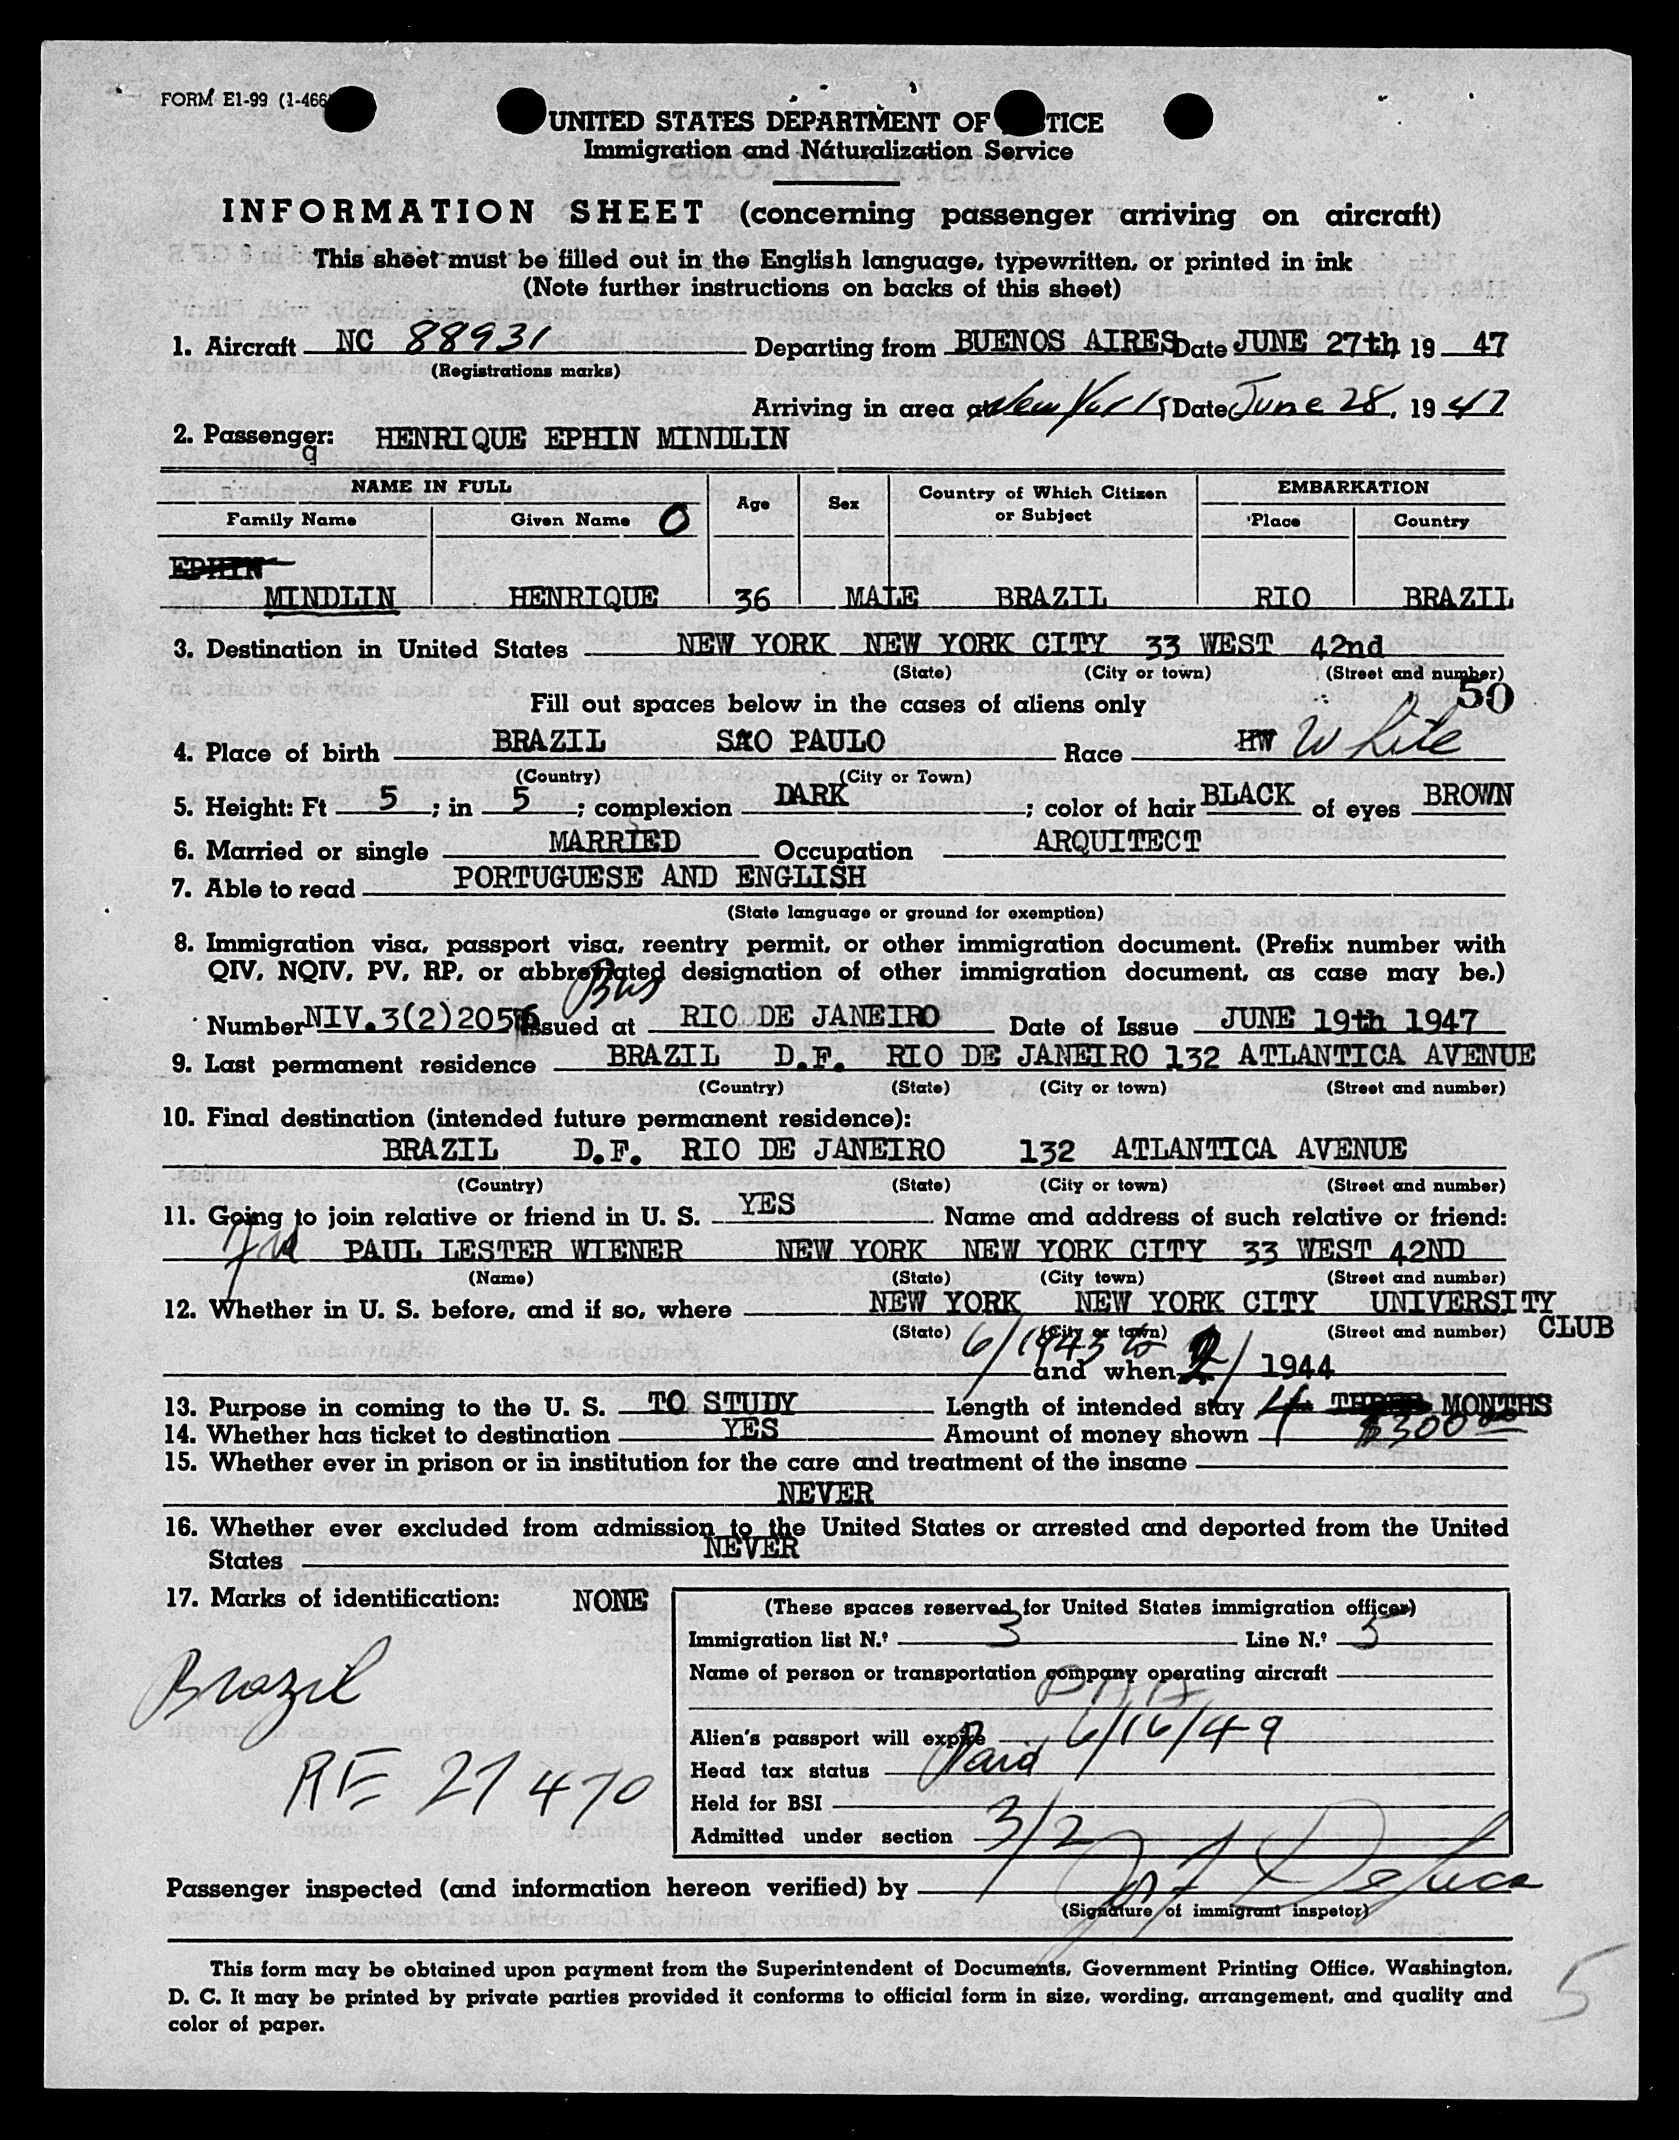 FORM E1-99 (1-466
UNITED STATES DEPARTMENT OF TICE
Immigration and Naturalization Service
INFORMATION SHEET (concerning passenger arriving on aircraft)
This sheet must be filled out in the English language, typewritten, or printed in ink
(Note further instructions on backs of this sheet)
1. Aircraft NC 88931 Departing from BUENOS AIRES Date JUNE 27th 19 47
(Registrations marks)
Arriving in area at New York Date June 28, 19 47
2. Passenger: HENRIQUE EPHIN MINDLIN
9
NAME IN FULL Age Sex Country of Which Citizen or Subject EMBARKATION
Family Name Given Name O Place Country
EPHIN
MINDLIN HENRIQUE 36 MALE BRAZIL RIO BRAZIL
3. Destination in United States NEW YORK NEW YORK CITY 33 WEST 42nd
(State) (City or town) (Street and number)
50
Fill out spaces below in the cases of aliens only
4. Place of birth BRAZIL SAO PAULO Race HW White
(Country) (City or Town)
5. Height: Ft 5 ; in 5 ; complexion DARK ; color of hair BLACK of eyes BROWN
6. Married or single MARRIED Occupation ARQUITECT
7. Able to read PORTUGUESE AND ENGLISH
(State language or ground for exemption)
8. Immigration visa, passport visa, reentry permit, or other immigration document. (Prefix number with
QIV, NQIV, PV, RP, or abbreviated designation of other immigration document, as case may be.)
Bus
Number NIV.3(2)205 issued at RIO DE JANEIRO Date of Issue JUNE 19th 1947
9. Last permanent residence BRAZIL D.F. RIO DE JANEIRO 132 ATLANTICA AVENUE
(Country) (State) (City or town) (Street and number)
10. Final destination (intended future permanent residence):
BRAZIL D.F. RIO DE JANEIRO 132 ATLANTICA AVENUE
(Country) (State) (City or town) (Street and number)
11. Going to join relative or friend in U. S. YES Name and address of such relative or friend:
PAUL LESTER WIENER NEW YORK NEW YORK CITY 33 WEST 42ND
(Name) (State) (City town) (Street and number)
12. Whether in U. S. before, and if so, where NEW YORK NEW YORK CITY UNIVERSITY CLUB
(State) (City or town) (Street and number)
6/1943 to and when 2/ 1944
13. Purpose in coming to the U. S. TO STUDY Length of intended stay 4 THREE MONTHS
14. Whether has ticket to destination YES Amount of money shown $300 00
15. Whether ever in prison or in institution for the care and treatment of the insane
NEVER
16. Whether ever excluded from admission to the United States or arrested and deported from the United
States NEVER
17. Marks of identification: NONE
(These spaces reserved for United States immigration officer)
Immigration list N.º 3 Line N.º 5
Name of person or transportation company operating aircraft
PAA
Alien's passport will expire 6/16/49
Head tax status Paid
Held for BSI
Admitted under section 3/2
Brazil
RE 27470
Passenger inspected (and information hereon verified) by
(Signature of immigrant inspetor)
This form may be obtained upon payment from the Superintendent of Documents, Government Printing Office, Washington,
D. C. It may be printed by private parties provided it conforms to official form in size, wording, arrangement, and quality and
color of paper.
5